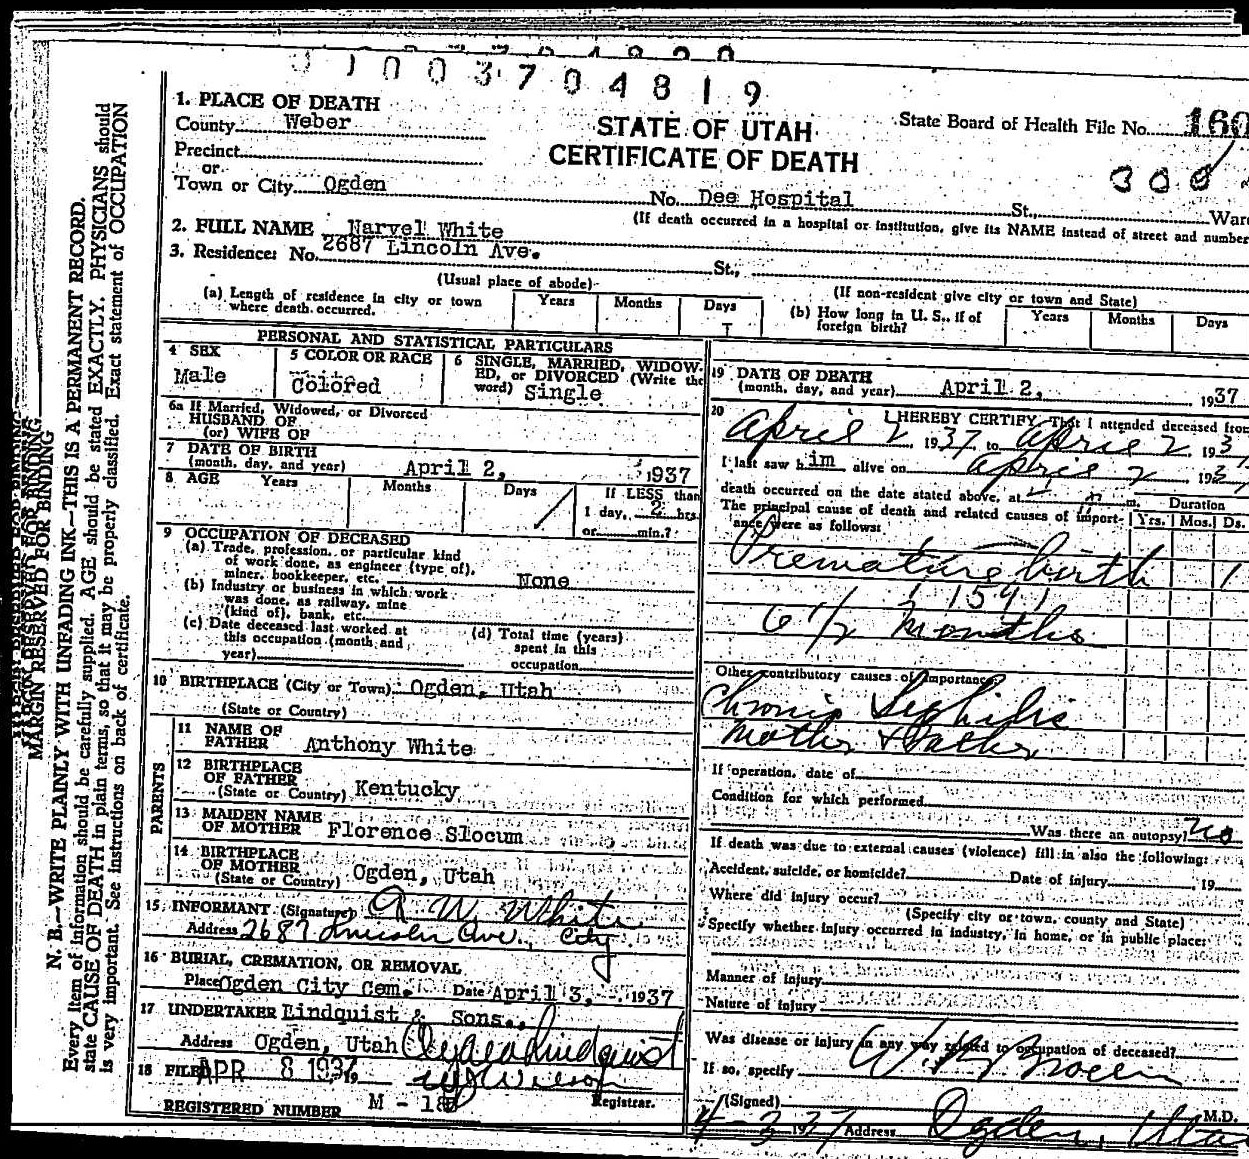 0003704819
1. PLACE OF DEATH
County Weber
Precinct
or
Town or City Ogden
STATE OF UTAH
CERTIFICATE OF DEATH
State Board of Health File No. 160
300
No. Dee Hospital St., Ward
(If death occurred in a hospital or institution, give its NAME instead of street and number
2. FULL NAME Narvel White
3. Residence: No. 2687 Lincoln Ave. St.,
(Usual place of abode) (If non-resident give city or town and State)
(a) Length of residence in city or town where death occurred. Years Months Days
(b) How long in U. S., if of foreign birth? Years Months Days
PERSONAL AND STATISTICAL PARTICULARS
4 SEX Male
5 COLOR OR RACE Colored
6 SINGLE, MARRIED, WIDOWED, or DIVORCED (Write the word) Single
6a If Married, Widowed, or Divorced
HUSBAND OF
(or) WIFE OF
7 DATE OF BIRTH
(month, day, and year) April 2, 1937
8 AGE Years Months Days / If LESS than
1 day, 2 hrs.
or min.?
9 OCCUPATION OF DECEASED
(a) Trade, profession, or particular kind
of work done, as engineer (type of),
miner, bookkeeper, etc. None
(b) Industry or business in which work
was done, as railway, mine
(kind of), bank, etc.
(c) Date deceased last worked at
this occupation (month and
year)
(d) Total time (years)
spent in this
occupation
10 BIRTHPLACE (City or Town) Ogden, Utah
(State or Country)
PARENTS
11 NAME OF
FATHER Anthony White
12 BIRTHPLACE
OF FATHER
(State or Country) Kentucky
13 MAIDEN NAME
OF MOTHER Florence Slocum
14 BIRTHPLACE
OF MOTHER
(State or Country) Ogden, Utah
15 INFORMANT (Signature) A W. White
Address 2687 Lincoln Ave., City
16 BURIAL, CREMATION, OR REMOVAL
Place Ogden City Cem. Date April 3, 1937
17 UNDERTAKER Lindquist & Sons.,
Address Ogden, Utah Lindquist
18 FILED APR 8 1937 Wilson
Registrar.
REGISTERED NUMBER M - 18
19 DATE OF DEATH
(month, day, and year) April 2, 1937
20 I HEREBY CERTIFY, That I attended deceased from
April 2 1937 to April 2 193
I last saw him alive on April 2 193
death occurred on the date stated above, at m.
The principal cause of death and related causes of importance were as follows: Duration
Yrs. Mos. Ds.
Premature birth 1
1591
6 1/2 months
Other contributory causes of importance
Chronic Syphilis
Mother & Father
If operation, date of
Condition for which performed
Was there an autopsy? No
If death was due to external causes (violence) fill in also the following:
Accident, suicide, or homicide? Date of injury 19
Where did injury occur?
(Specify city or town, county and State)
Specify whether injury occurred in industry, in home, or in public place:
Manner of injury
Nature of injury
Was disease or injury in any way related to occupation of deceased?
If so, specify
(Signed) M.D.
4-3 1937 Address Ogden, Utah
MARGIN RESERVED FOR BINDING
N. B.—WRITE PLAINLY WITH UNFADING INK—THIS IS A PERMANENT RECORD.
Every item of information should be carefully supplied. AGE should be stated EXACTLY. PHYSICIANS should
state CAUSE OF DEATH in plain terms, so that it may be properly classified. Exact statement of OCCUPATION
is very important. See instructions on back of certificate.